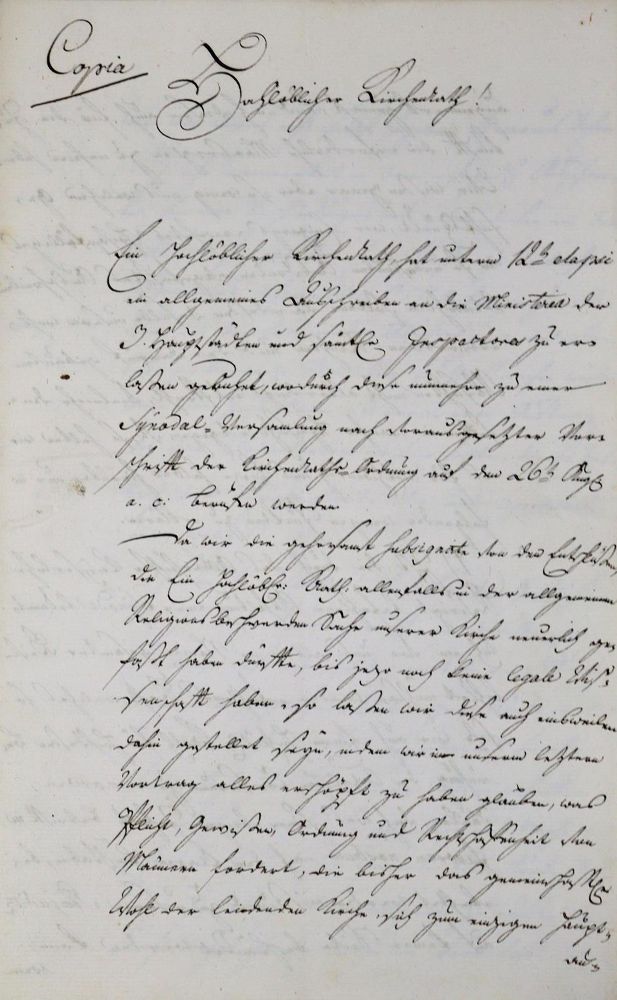 Copia
Hochlöblicher Kirchenrath!
Ein Hochlöblicher Kirchenrath, hat unterm 12ten elapsi
ein allgemeines Ausschreiben an die Ministeria der
3. Hauptstädten und sämtl. Inspectores zu er-
laßen geruhet, wodurch diese nunmehro zu einer
Synodal-Versamlung nach vorausgesetzter Vor-
schrift der Kirchenraths-Ordnung auf den 26ten Aug.
a. c. berufen werden.
Da wir die gehorsamst subsignate von den Entschlüßen,
die Ein Hochlöbl. Rath, allenfalls in der allgemeinen
Religionsbeschwerden Sache unserer Kirche neuerlich ge-
faßt haben dürfte, bis jezo noch keine legale Wis-
senschaft haben, so laßen wir diese auch einsweilen
dahin gestellet seyn, indem wir in unserm letztern
Vortrag alles erschöpft zu haben glauben, was
Pflicht, Gewißen, Ordnung und Rechtschaffenheit von
Männern fordert, die bisher das gemeinschaftl.
Wohl der leidenden Kirche, sich zum einzigen Haupt-
au-